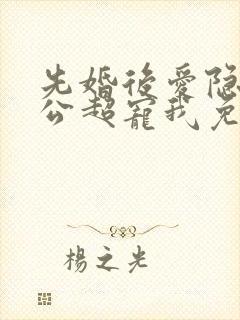 先婚後愛隐
公超寵我免
楊之光